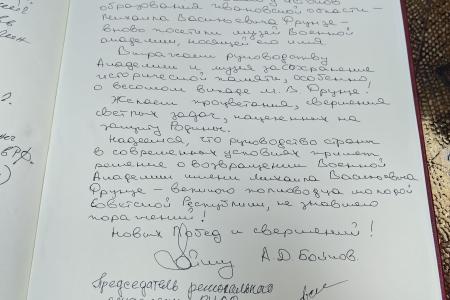 образования Ивановской области –
Михаила Васильевича Фрунзе –
вновь посетили музей Военной
академии, носящей его имя.
Выражаем руководству
Академии и музея за сохранение
исторической памяти, особенно!
о весомом вкладе М. В. Фрунзе.
Желаем процветания, свершения
светлых задач, нацеленных на
защиту Родины.
Надеемся, что руководство страны
в современных условиях примет
решение о возвращении Военной
Академии имени Михаила Васильевича
Фрунзе – великого полководца молодой
Советской Республики, не знавшего
поражений!
Новых Побед и свершений!
А Д Боянов.
Председатель регионального